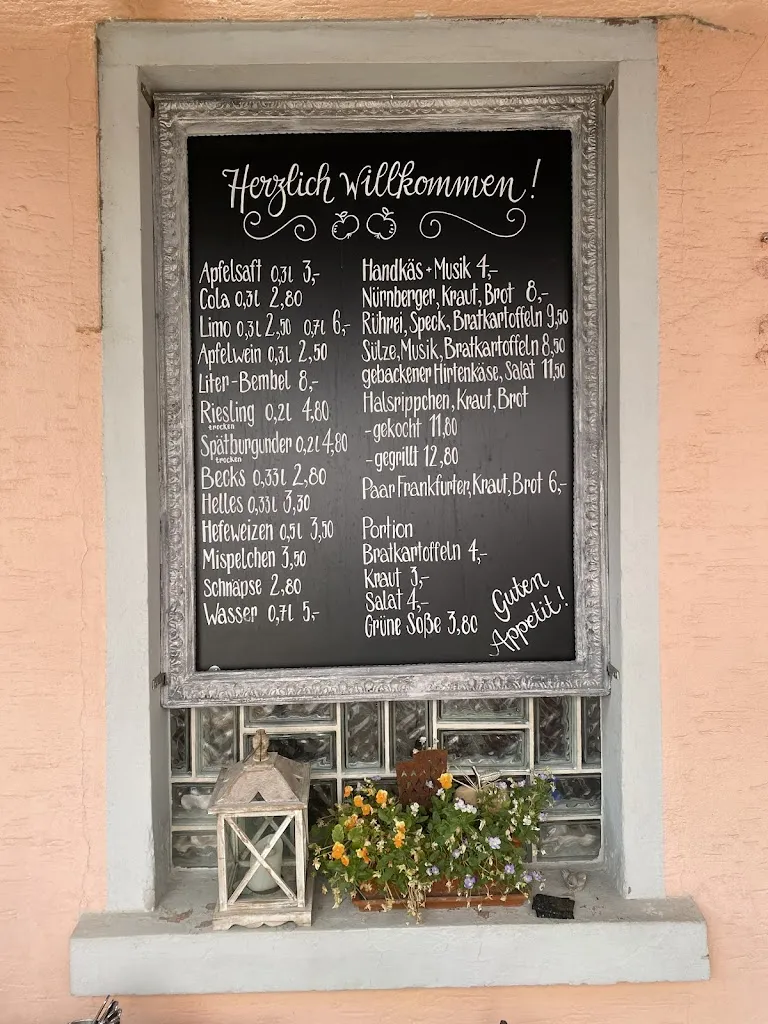 Herzlich willkommen!
Apfelsaft 0,3l 3,-
Cola 0,3l 2,80
Limo 0,3l 2,50 0,7l 6,-
Apfelwein 0,3l 2,50
Liter-Bembel 8,-
Riesling 0,2l 4,80
trocken
Spätburgunder 0,2l 4,80
trocken
Becks 0,33l 2,80
Helles 0,33l 3,30
Hefeweizen 0,5l 3,50
Mispelchen 3,50
Schnäpse 2,80
Wasser 0,7l 5,-
Handkäs + Musik 4,-
Nürnberger, Kraut, Brot 8,-
Rührei, Speck, Bratkartoffeln 9,50
Sülze, Musik, Bratkartoffeln 8,50
gebackener Hirtenkäse, Salat 11,50
Halsrippchen, Kraut, Brot
-gekocht 11,80
-gegrillt 12,80
Paar Frankfurter, Kraut, Brot 6,-
Portion
Bratkartoffeln 4,-
Kraut 3,-
Salat 4,-
Grüne Soße 3,80
Guten
Appetit!